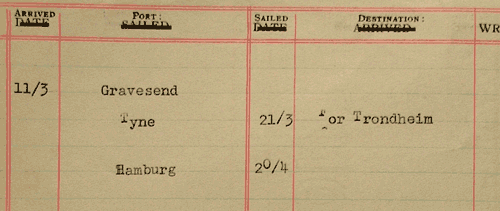 ARRIVED PORT: SAILED DESTINATION: WR
DATE SAILED DATE ARRIVED
11/3 Gravesend
Tyne 21/3 For Trondheim
Hamburg 20/4